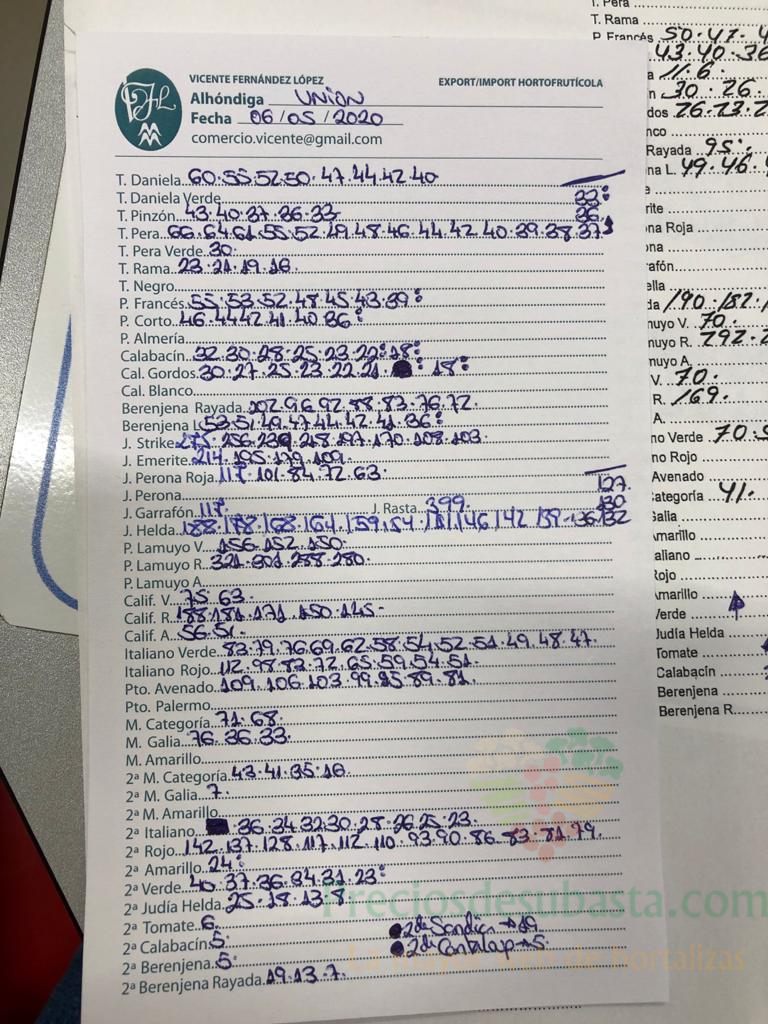 VICENTE FERNÁNDEZ LÓPEZ
EXPORT/IMPORT HORTOFRUTÍCOLA
Alhóndiga UNION
Fecha 06/05/2020
comercio.vicente@gmail.com
T. Daniela 60.55.52.50.47.44.42.40
T. Daniela Verde 33:
T. Pinzón 43.40.37.36.33 36
T. Pera 66.64.61.55.52.49.48.46.44.42.40.39.38.37
T. Pera Verde 30
T. Rama 23.21.19.16
T. Negro
P. Francés 55.53.52.48.45.43.39:
P. Corto 46.44.42.41.40.36:
P. Almería
Calabacín 32.30.28.25.23.22:18:
Cal. Gordos 30.27.25.23.22.21. : 18:
Cal. Blanco
Berenjena Rayada 102.96.92.88.83.76.72.
Berenjena L 53.51.49.47.44.42.41.36:
J. Strike 275.256.239.218.197.170.108.103.
J. Emerite 214.195.179.109.
J. Perona Roja 117.101.84.72.63.
J. Perona 127
J. Garrafón 117. J. Rasta 399. 130
J. Helda 188/178/168/164/159/54/151/146/142/139-136/132
P. Lamuyo V. 156.152.150.
P. Lamuyo R. 321.301.288.280.
P. Lamuyo A.
Calif. V. 75.63.
Calif. R. 188.181.171.150.145-
Calif. A. 56.51.
Italiano Verde 83.79.76.69.62.58.54.52.51.49.48.47.
Italiano Rojo 112.98.82.72.65.59.54.51.
Pto. Avenado 109.106.103.99.95.89.81.
Pto. Palermo
M. Categoría 71.68.
M. Galia 76.36.33.
M. Amarillo
2ª M. Categoría 43.41.35.16.
2ª M. Galia 7.
2ª M. Amarillo
2ª Italiano 36.34.32.30.28.26.25.23.
2ª Rojo 142.137.128.117.112.110.93.90.86.83.81.79.
2ª Amarillo 24:
2ª Verde 40.37.36.34.31.23:
2ª Judía Helda 25.18.13.8.
2ª Tomate 6.
2ª Calabacín 5
2ª Berenjena 5
2ª Berenjena Rayada 19.13.7.
2ª Sandia → 19
2ª Cantalup → 5.
Preciosdesubasta.com
T. Pera
T. Rama
P. Francés 50.47.4
43.40.36
11.6.
30.26.
dos 26.23.2
nco
Rayada 95:
na L. 49.46.
rite
ona Roja
ona
rafón
ella
da 190.182.
muyo V. 70.
muyo R. 292.2
muyo A.
V. 70.
R. 169.
A.
no Verde 70.5
no Rojo
Avenado
ategoría 41.
Galia
marillo
aliano
Rojo
Amarillo
Verde
Judía Helda
Tomate
Calabacín
Berenjena
Berenjena R.